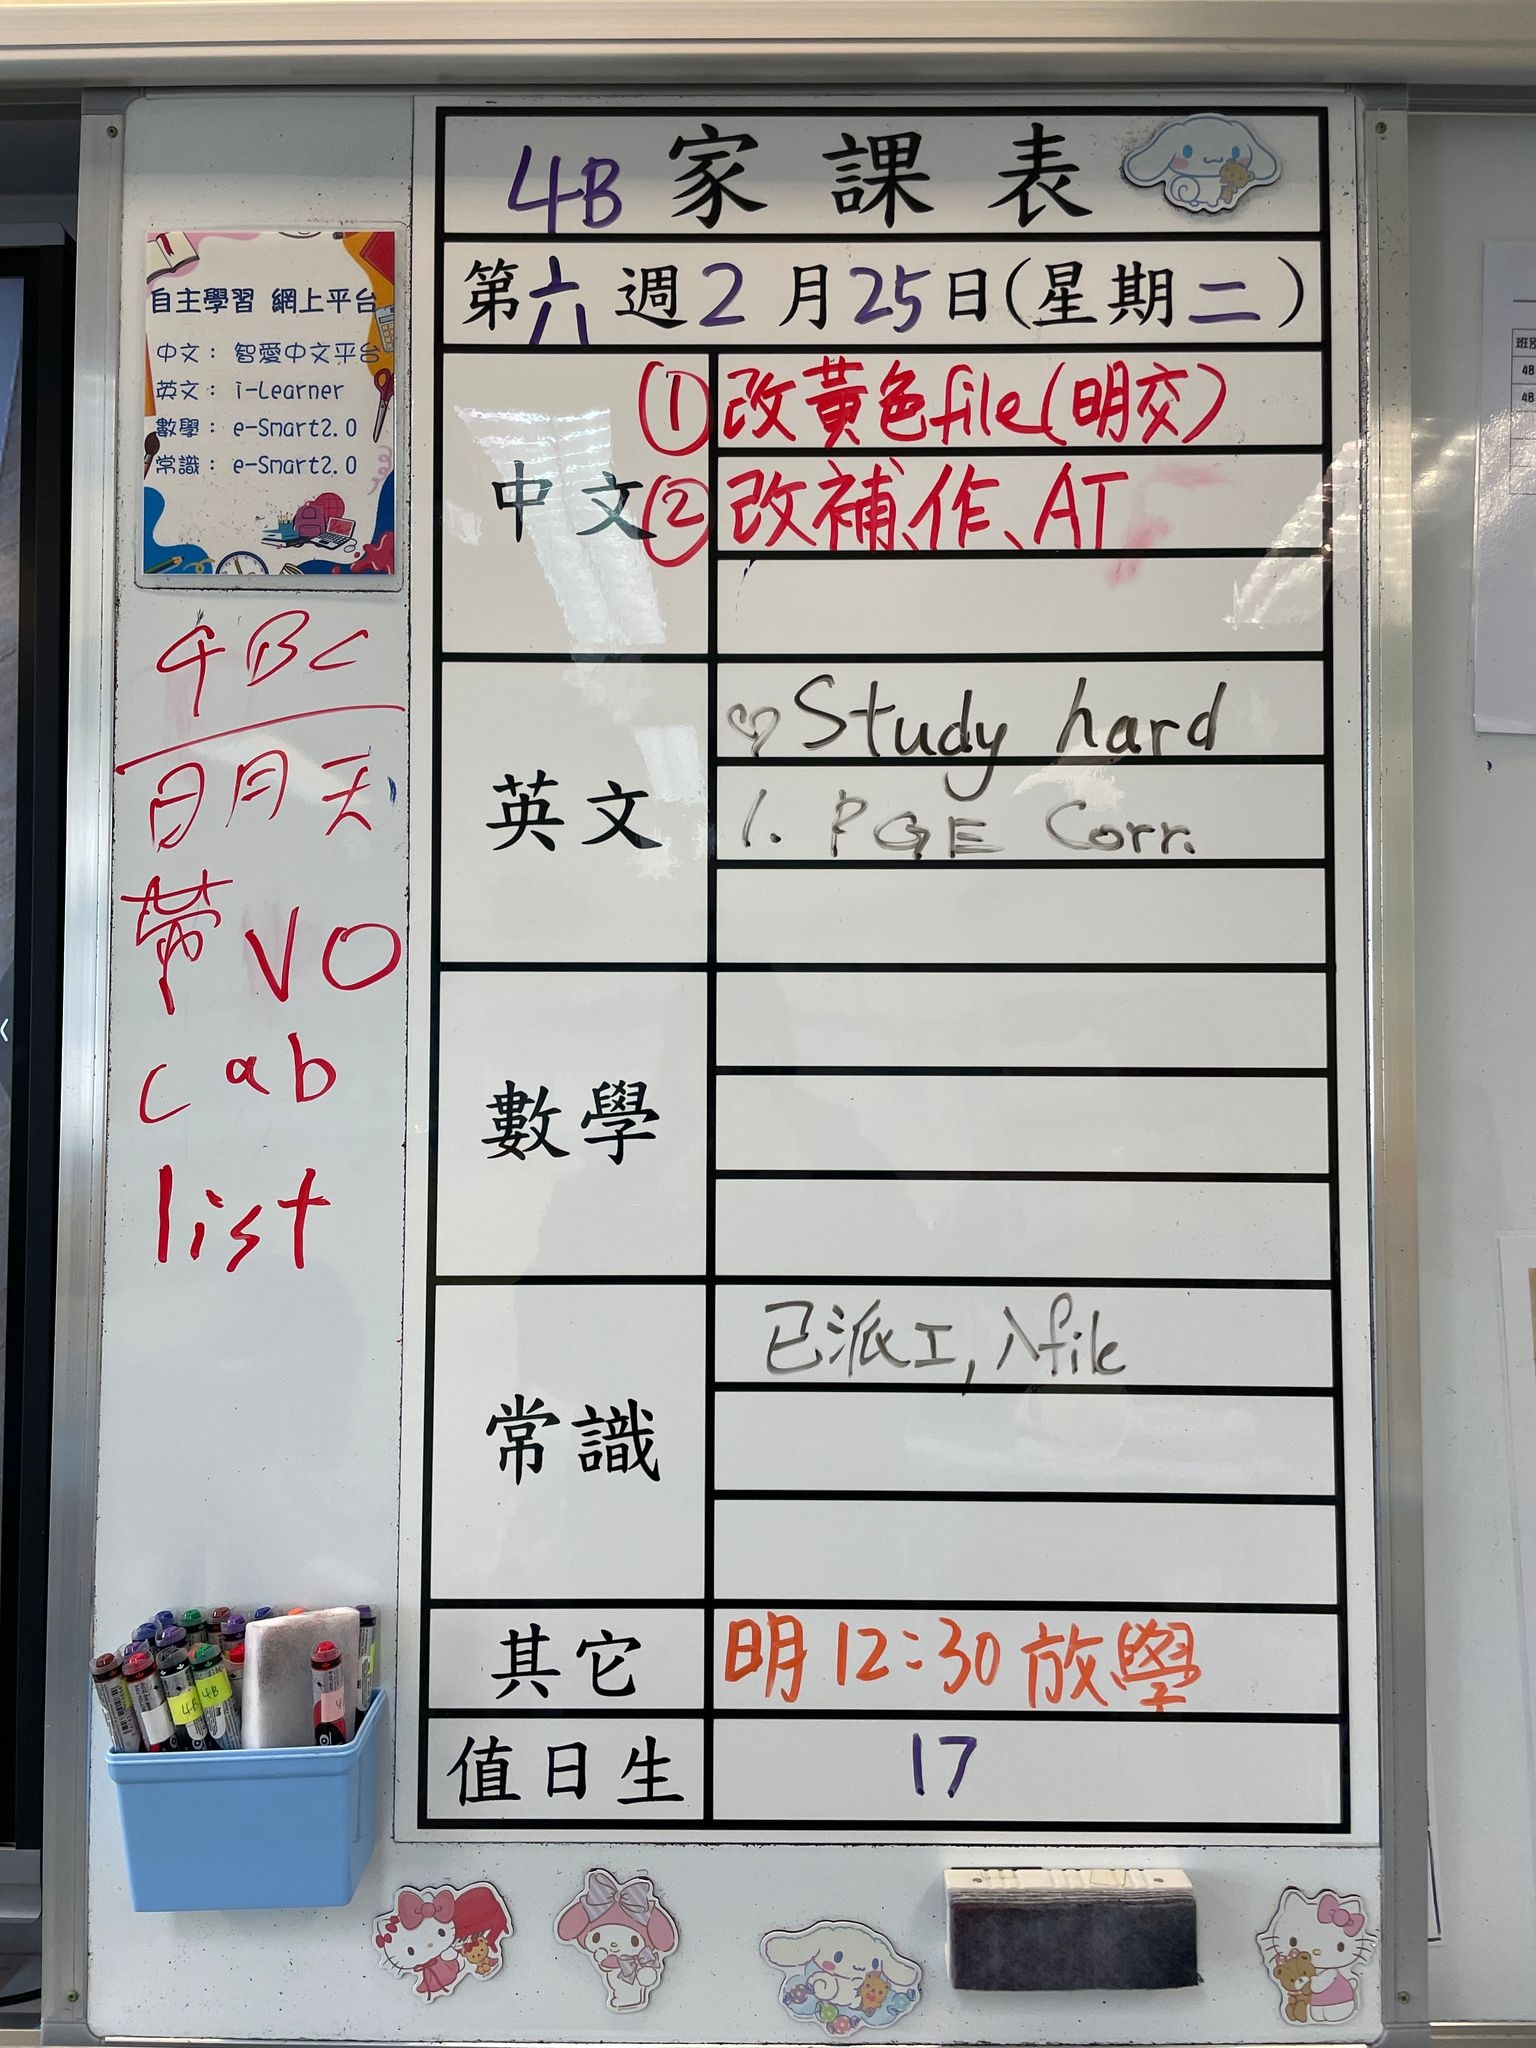 4B 家課表
第六週2月25日(星期二)
自主學習 網上平台
中文： 智愛中文平台
英文： i-Learner
數學： e-Smart2.0
常識： e-Smart2.0
4BC
明天
帶VO
cab
list
中文
①改黃色file(明交)
②改補、作、AT
英文
♡ Study hard
1. PGE Corr.
數學
常識
已派工,入file
其它
明12:30放學
值日生
17
班別
4B
4B
4B
4B